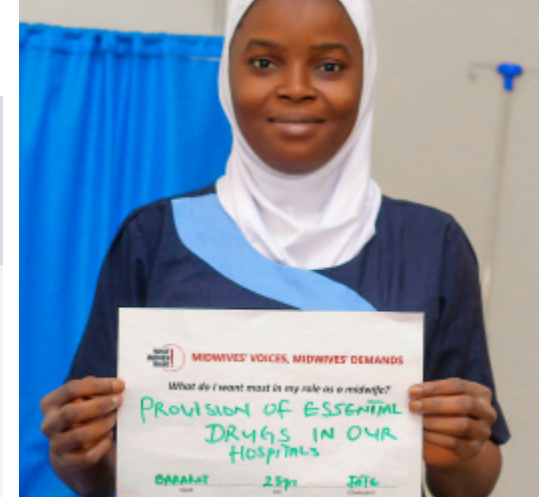 WHAT
WOMEN
WANT
MIDWIVES' VOICES, MIDWIVES' DEMANDS
What do I want most in my role as a midwife?
PROVISION OF ESSENTIAL
DRUGS IN OUR
HOSPITALS
BARAKAT